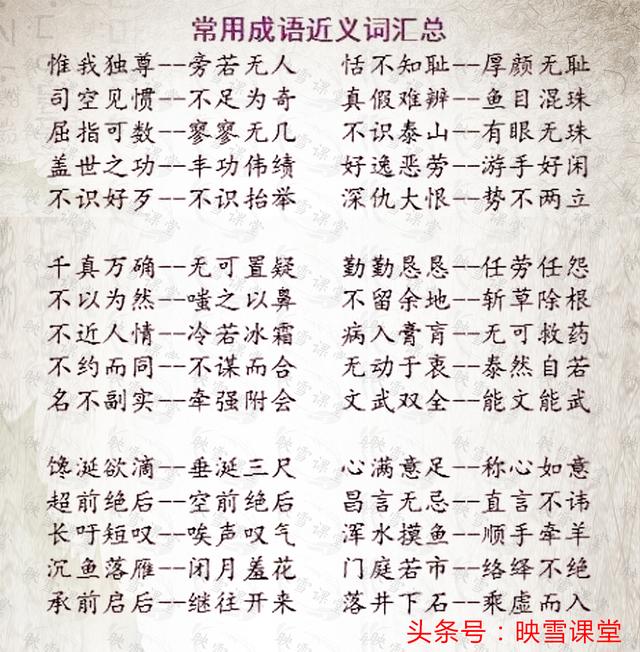 常用成语近义词汇总
惟我独尊--旁若无人 恬不知耻--厚颜无耻
司空见惯--不足为奇 真假难辨--鱼目混珠
屈指可数--寥寥无几 不识泰山--有眼无珠
盖世之功--丰功伟绩 好逸恶劳--游手好闲
不识好歹--不识抬举 深仇大恨--势不两立
千真万确--无可置疑 勤勤恳恳--任劳任怨
不以为然--嗤之以鼻 不留余地--斩草除根
不近人情--冷若冰霜 病入膏肓--无可救药
不约而同--不谋而合 无动于衷--泰然自若
名不副实--牵强附会 文武双全--能文能武
馋涎欲滴--垂涎三尺 心满意足--称心如意
超前绝后--空前绝后 昌言无忌--直言不讳
长吁短叹--唉声叹气 浑水摸鱼--顺手牵羊
沉鱼落雁--闭月羞花 门庭若市--络绎不绝
承前启后--继往开来 落井下石--乘虚而入
头条号：映雪课堂